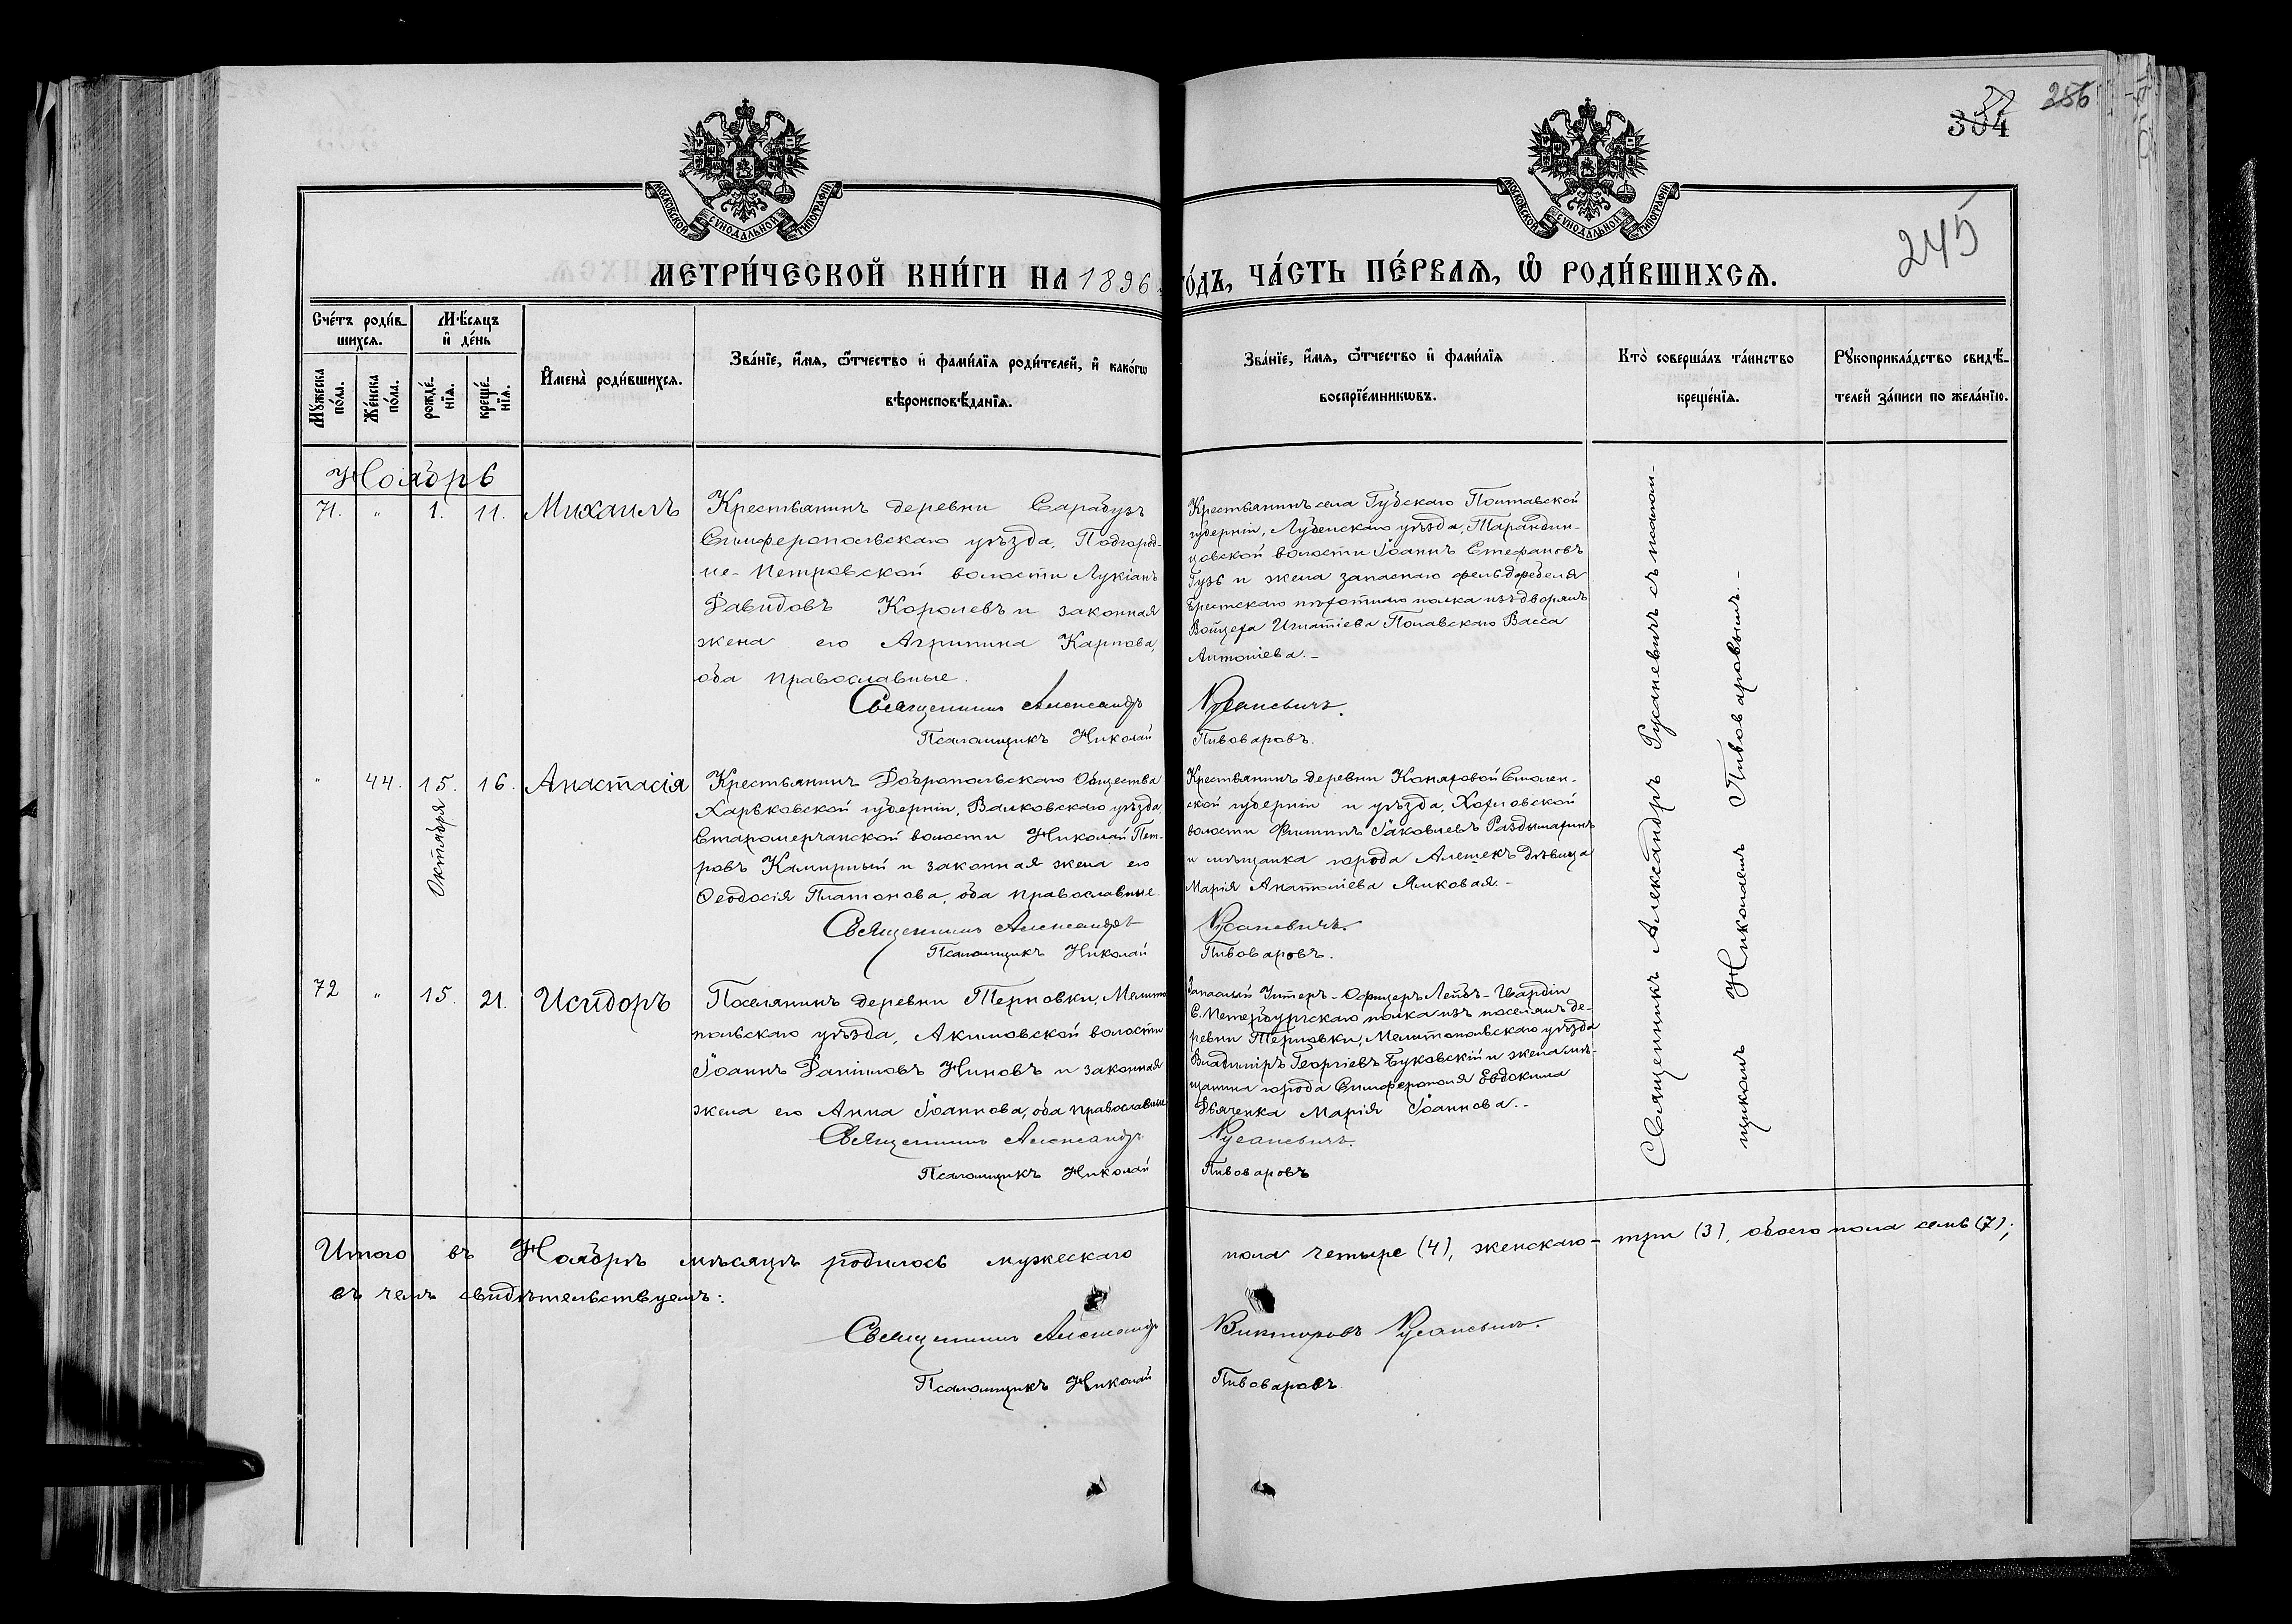 286
37
334
МОСКОВСКОЙ СѴНОДАЛЬНОЙ ТИПОГРАФІИ
МОСКОВСКОЙ СѴНОДАЛЬНОЙ ТИПОГРАФІИ
245
МЕТРИ́ЧЕСКОЙ КНИ́ГИ НА 1896 ГО́ДЪ, ЧА́СТЬ ПЕ́РВАЯ, Ѿ РОДИ́ВШИХСЯ.
Сче́тъ роди́в-
шихся.
Мѣ́сяцъ
и҆ де́нь
Мꙋ́жеска
по́ла.
Же́нска
по́ла.
рожде́-
нїя.
креще́-
нїя.
И҆мена̀ роди́вшихся.
Зва́нїе, и҆́мя, ѻ҆́тчество и҆ фами́лїя роди́телей, и҆ како́гѡ
вѣроисповѣ́данїя.
Зва́нїе, и҆́мя, ѻ҆́тчество и҆ фами́лїя
воспрїе́мникѡвъ.
Кто̀ соверша́лъ та́инство
креще́нїя.
Рꙋкоприкла́дство свидѣ́-
телей за́писи по жела́нїю.
Ноябрь
71. " 1. 11. Михаилъ
Крестьянинъ деревни Сарабузъ
Симферопольскаго уѣзда, Подгород-
не-Петровской волости Лукіанъ
Давидовъ Королевъ и законная
жена его Агрипина Карпова,
оба православные.
Священникъ Александръ
Псаломщикъ Николай
Крестьянинъ села Губскаго Полтавской
губерніи, Лубенскаго уѣзда, Тарандин-
цовской волости Іоаннъ Стефановъ
Гузь и жена запаснаго фельдфебеля
Брестскаго пѣхотнаго полка изъ дворянъ
Войцеха Игнатіева Полавскаго Васса
Антоніева.-
Русаневичъ.
Пивоваровъ.
" 44. 15. 16. Анастасія
Октября
Крестьянинъ Добропольскаго Общества
Харьковской губерніи, Валковскаго уѣзда,
Старомерчанской волости Николай Пет-
ровъ Камирный и законная жена его
Ѳеодосія Платонова, оба православные.
Священникъ Александръ
Псаломщикъ Николай
Крестьянинъ деревни Конятовой Смолен-
ской губерніи и уѣзда, Хохловской
волости Филиппъ Іаковлевъ Раздымахинъ
и мѣщанка города Алешекъ дѣвица
Марія Анатоліева Ямковая.-
Русаневичъ.
Пивоваровъ.
72 " 15. 21. Исидоръ
Поселянинъ деревни Терновки, Мелито-
польскаго уѣзда, Акимовской волости
Іоаннъ Даніиловъ Ниновъ и законная
жена его Анна Іоаннова, оба православные
Священникъ Александръ
Псаломщикъ Николай
Запасный Унтеръ-Офицеръ Лейбъ-Гвардіи
С. Петербургскаго полка изъ поселянъ де-
ревни Терновки, Мелитопольскаго уѣзда
Владиміръ Георгіевъ Буковскій и жена мѣ-
щанина города Симферополя Евдокима
Дьяченка Марія Іоаннова.-
Русаневичъ.
Пивоваровъ
Священникъ Александръ Русаневичъ съ псалом-
щикомъ Николаемъ Пивоваровымъ.-
Итого въ Ноябрѣ мѣсяцѣ родилось мужескаго пола четыре (4), женскаго - три (3), обоего пола семь (7);
въ чемъ свидѣтельствуемъ:
Священникъ Александръ Викторовъ Русаневичъ.
Псаломщикъ Николай Пивоваровъ